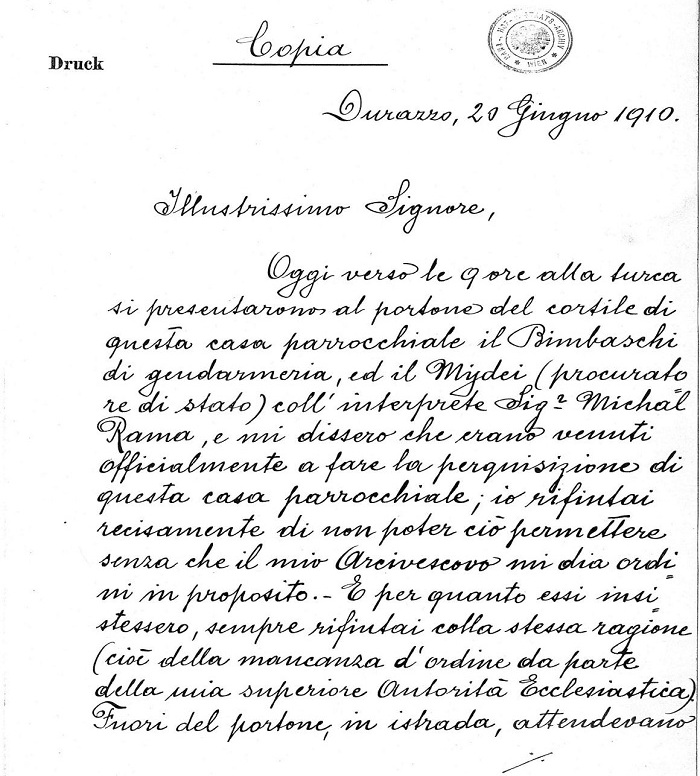 Druck
Copia
HAUS- HOF- U. STAATS-ARCHIV * WIEN *
Durazzo, 20 Giugno 1910.
Illustrissimo Signore,
Oggi verso le 9 ore alla turca
si presentarono al portone del cortile di
questa casa parrocchiale il Bimbaschi
di gendarmeria, ed il Mydei (procurato=
re di stato) coll' interprete Sig.r Michal
Rama, e mi dissero che erano venuti
officialmente a fare la perquisizione di
questa casa parrocchiale; io rifiutai
recisamente di non poter ciò permettere
senza che il mio Arcivescovo mi dia ordi=
ni in proposito. - E per quanto essi insi=
stessero, sempre rifiutai colla stessa ragione
(cioè della mancanza d'ordine da parte
della mia superiore Autorità Ecclesiastica).
Fuori del portone, in istrada, attendevano
./.